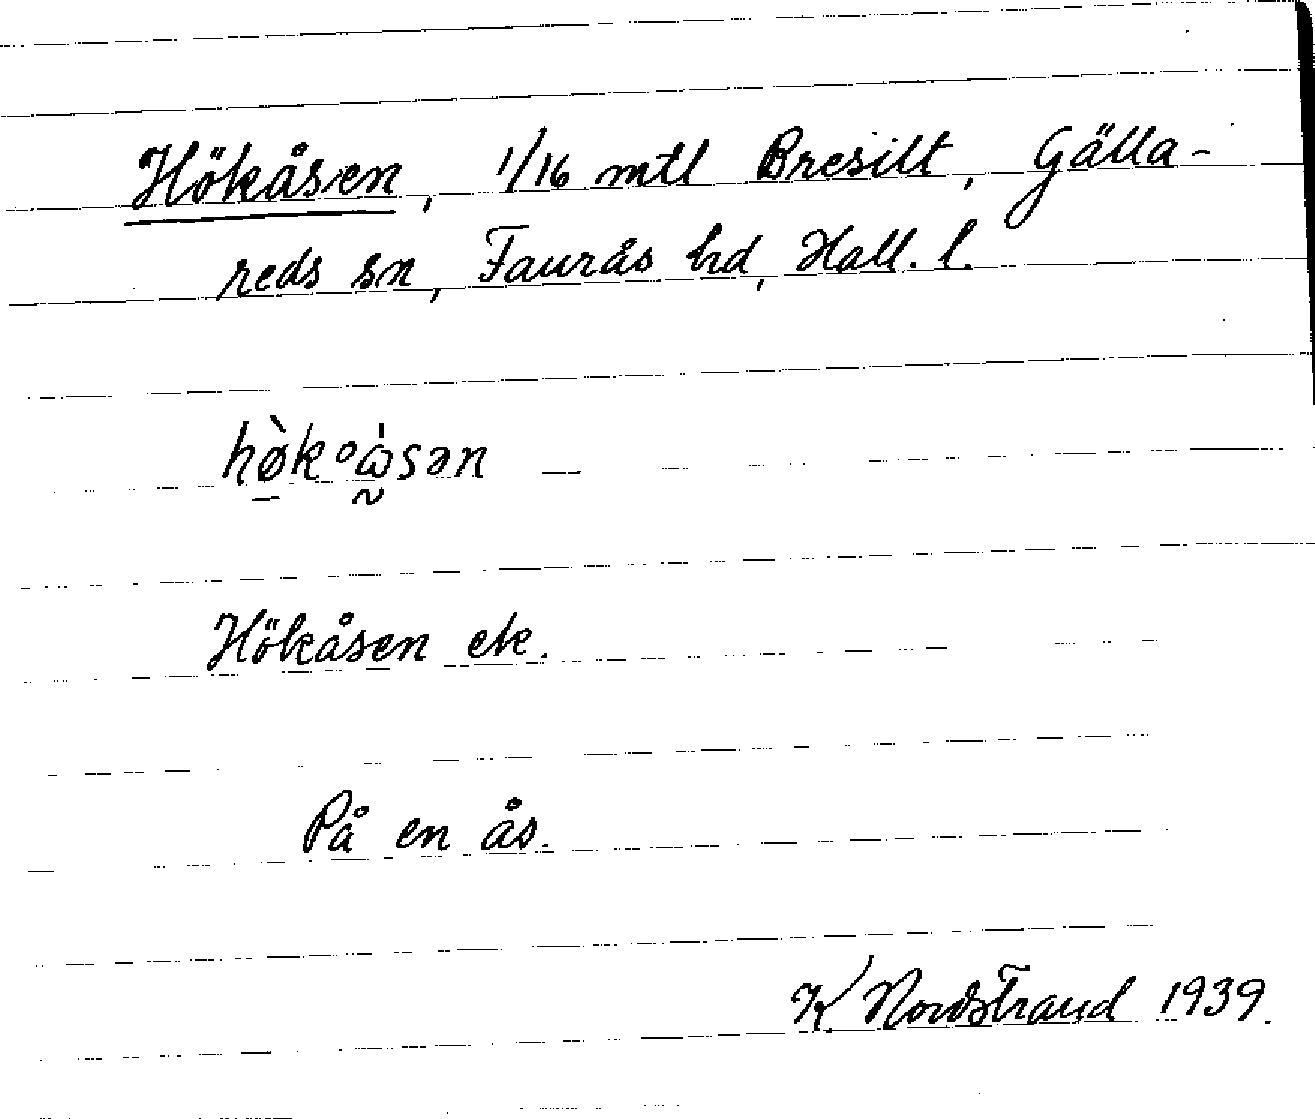 Hökåsen, 1/16 mtl Bresilt, Gälla-
reds sn, Faurås hd, Hall. l.
hø̱̀kºω̰̍sən
Hökåsen ek.
På en ås.
K Nordstrand 1939.